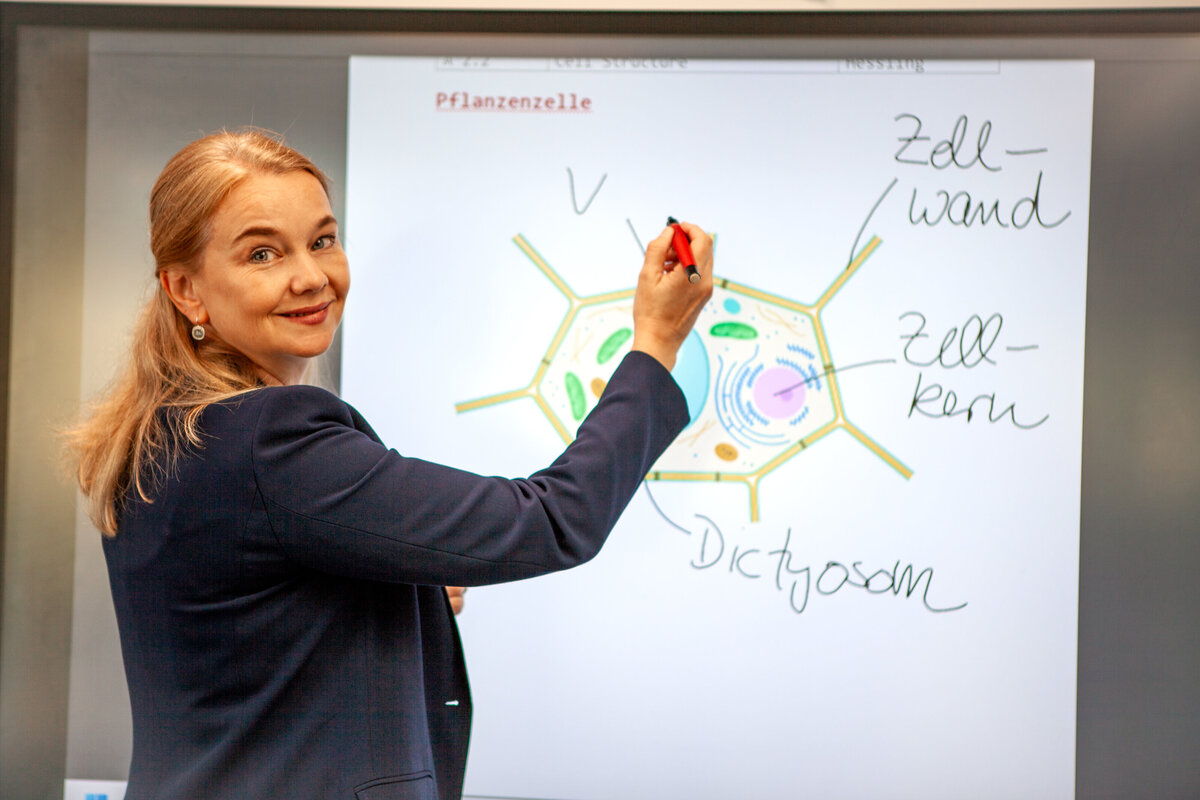 A 2.2 Cell Structure Hessling
Pflanzenzelle
V
Zell-
wand
Zell-
kern
Dictyosom